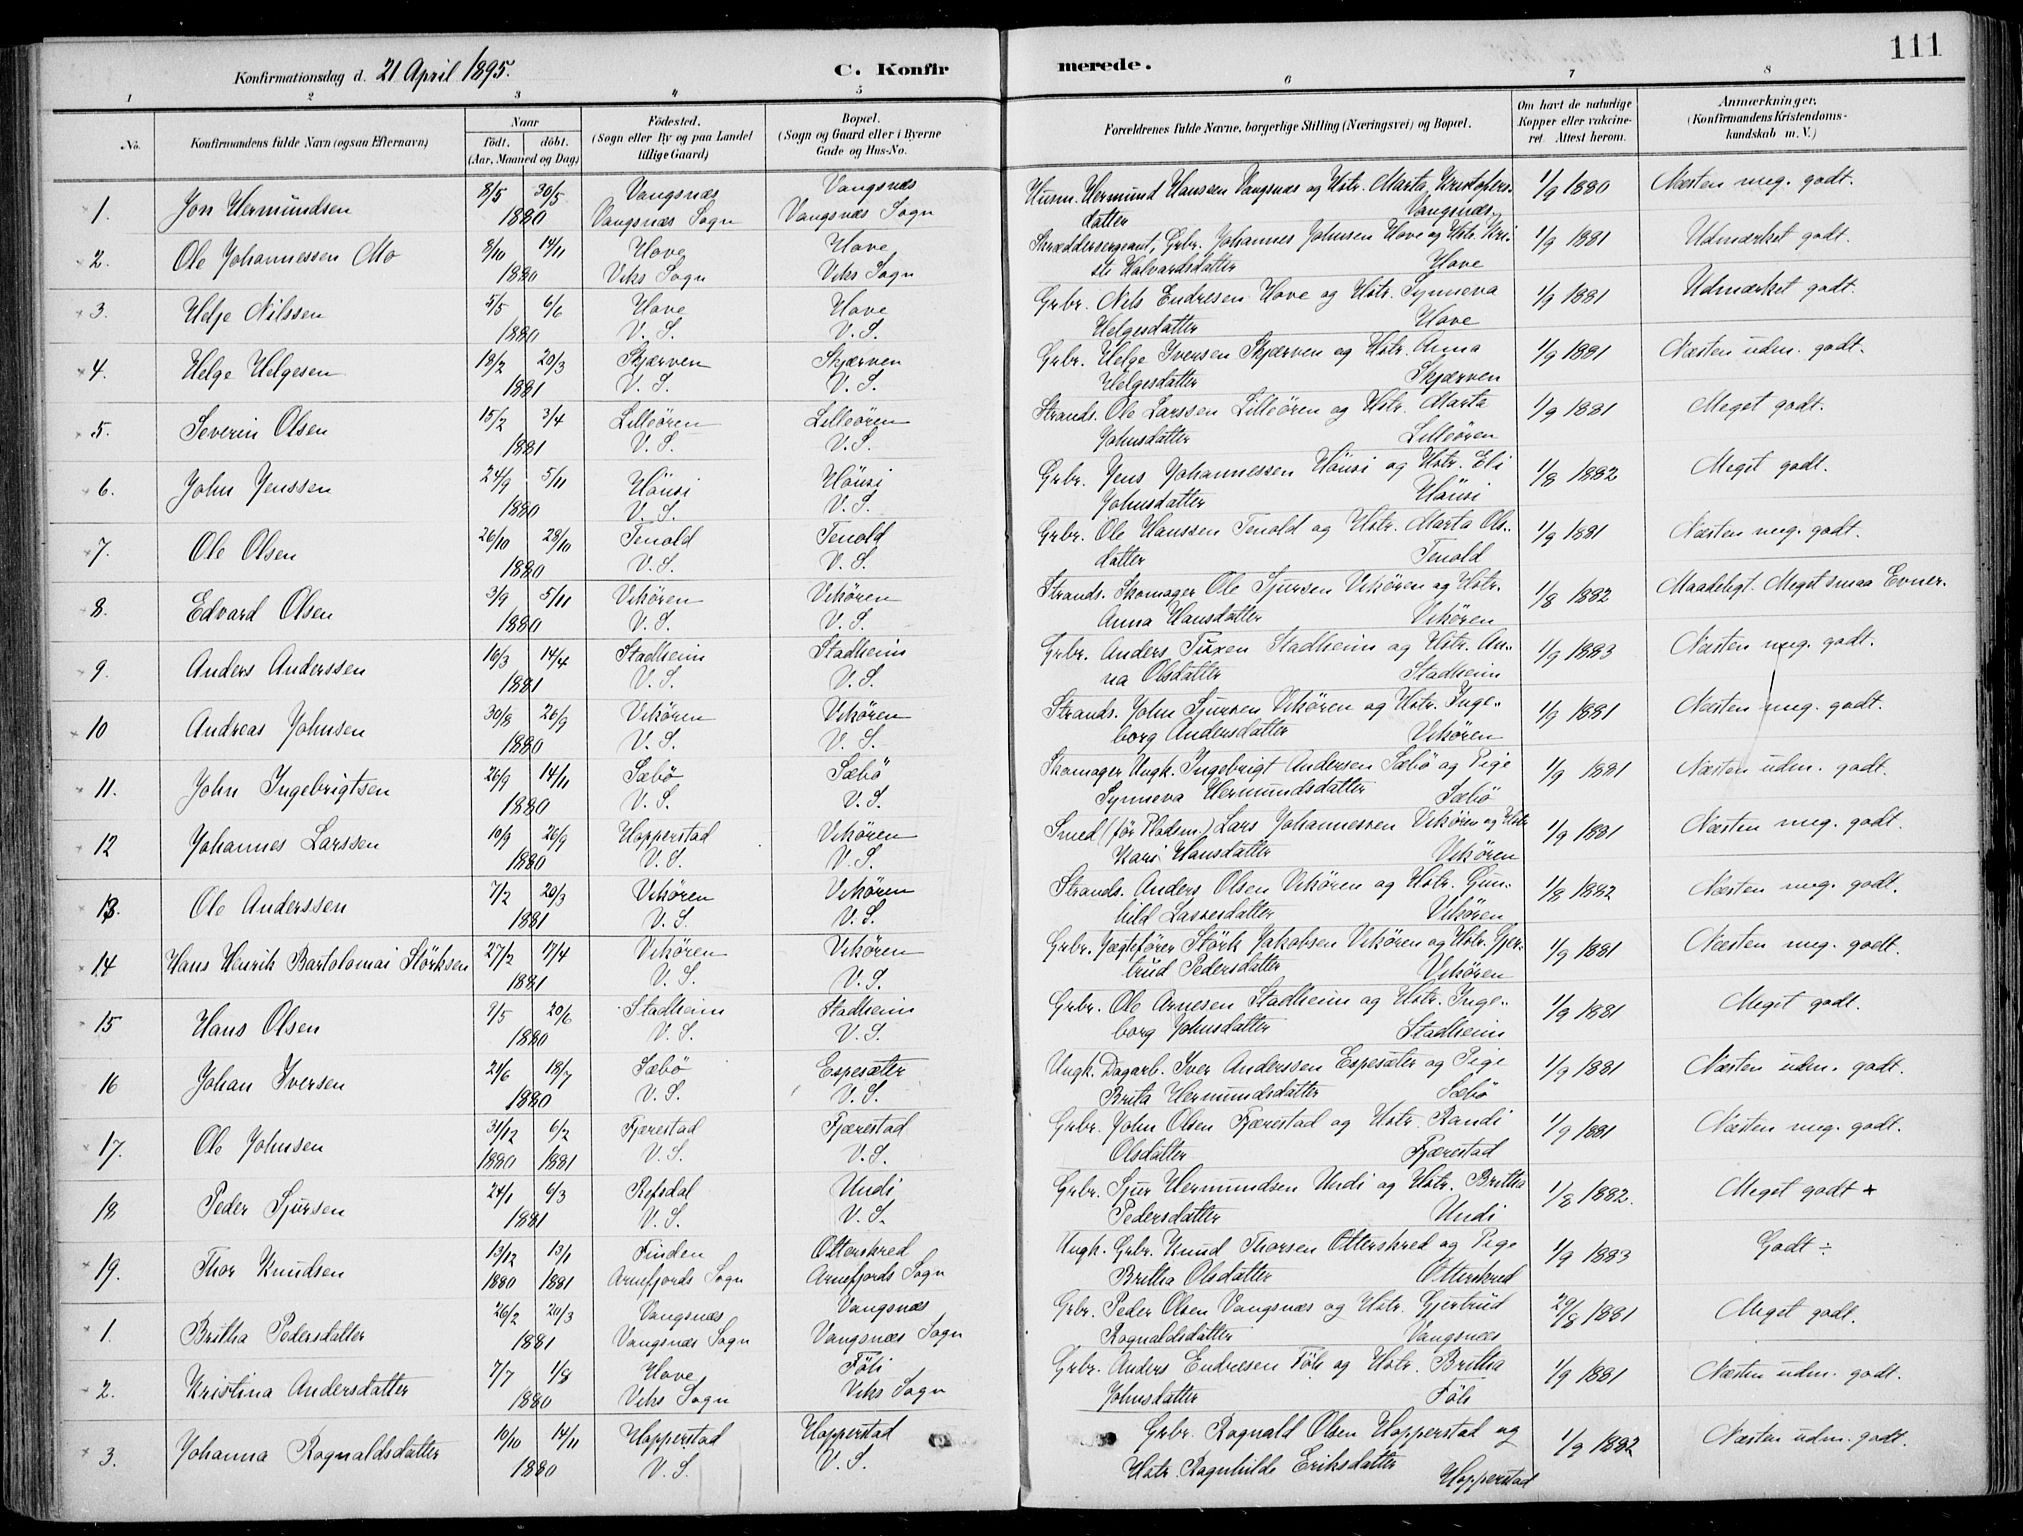 111
Konfirmationsdag d. 21 April 1895. C. Konfirmerede.
1 2 3 4 5 6 7 8
No. Konfirmandens fulde Navn (ogsaa Efternavn) Naar født. døbt. (Aar, Maaned og Dag) Fødested. (Sogn eller By og paa Landet tillige Gaard) Bopæl. (Sogn og Gaard eller i Byerne Gade og Hus-No. Forældrenes fulde Navne, borgerlige Stilling (Næringsvei) og Bopæl. Om havt de naturlige Kopper eller vakcineret. Attest herom. Anmærkninger. (Konfirmandens Kristendomskundskab m. V.)
1. Jon Hermundsen 8/5 30/5 Vangsnæs Vangsnæs Husm. Hermund Hansen Vangsnæs og Hstr. Marta Kristophers- 1/9 1880 Næsten meg. godt.
1880 Vangsnæs Sogn Vangsnæs Sogn datter Vangsnæs
2. Ole Johannessen Mo 8/10 14/11 Hove Hove Skræddersergeant, Grbr. Johannes Johnsen Hove og Hstr. Kri- 1/9 1881 Udmærket godt.
1880 Viks Sogn Viks Sogn sti Halvardsdatter Hove
3. Helje Nilssen 5/5 6/6 Hove Hove Grbr. Nils Endresen Hove og Hstr. Synneva 1/9 1881 Udmærket godt.
1880 V. S. V. S. Helgesdatter Hove
4. Helge Helgesen 18/2 20/3 Skjærven Skjærven Grbr. Helge Iversen Skjærven og Hstr. Anna 1/9 1881 Næsten udm. godt.
1881 V. S. V. S. Helgesdatter Skjærven
5. Severin Olsen 15/2 3/4 Lilleören Lilleören Strands. Ole Larssen Lilleören og Hstr. Marta 1/9 1881 Meget godt.
1881 V. S. V. S. Johnsdatter Lilleören
6. John Jenssen 24/9 5/11 Hönsi Hönsi Grbr. Jens Johannessen Hönsi og Hstr. Eli 1/8 1882 Meget godt.
1880 V. S. V. S. Johnsdatter Hönsi
7. Ole Olsen 26/10 28/10 Tenold Tenold Grbr. Ole Hanssen Tenold og Hstr. Marta Ols- 1/9 1881 Næsten meg. godt.
1880 V. S. V. S. datter Tenold
8. Edvard Olsen 3/9 5/11 Viköre​n Vikören Strands. Skomager Ole Sjursen Vikören og Hstr. 1/8 1882 Maadeligt. Meget smaa Evner.
1880 V. S. V. S. Anna Hansdatter Vikören
9. Anders Anderssen 16/3 14/4 Stadheim Stadheim Grbr. Anders Tuxen Stadheim og Hstr. An- 1/9 1883 Næsten meg. godt.
1881 V. S. V. S. na Olsdatter Stadheim
10 Andreas Johnsen 30/8 26/9 Vikören Vikören Strands. John Sjursen Vikören og Hstr. Inge- 1/9 1881 Næsten meg. godt.
1880 V. S. V. S. borg Andersdatter Vikören
11. John Ingebrigtsen 26/9 14/11 Sæbö Sæbö Skomager Ungk. Ingebrigt Andersen Sæbö og Pige 1/9 1881 Næsten udm. godt.
1880 V. S. V. S. Synneva Hermundsdatter Sæbö
12 Johannes Larssen 10/9 26/9 Hopperstad Vikören Smed (för Pladsm.) Lars Johannessen Vikören og Hstr 1/9 1881 Næsten meg. godt.
1880 V. S. V. S. Kari Hansdatter Vikören
13. Ole Anderssen 7/2 20/3 Vikören Vikören Strands. Anders Olsen Vikören og Hstr. Gun- 1/8 1882 Næsten meg. godt.
1881 V. S. V. S. hild Lassesdatter Vikören
14 Hans Henrik Bartolomai Störksen 27/2 17/4 Vikören Vikören Grbr. Jægtefører Störk Jakobsen Vikören og Hstr. Gjer- 1/9 1881 Næsten meg. godt.
1881 V. S. V. S. trud Pedersdatter Vikören
15 Hans Olsen 1/5 20/6 Stadheim Stadheim Grbr. Ole Arnesen Stadheim og Hstr. Inge- 1/9 1881 Meget godt.
1880 V. S. V. S. borg Johnsdatter Stadheim
16 Johan Iversen 21/6 18/7 Sæbö Espesæter Ungk. Dagarb. Iver Anderssen Espesæter og Pige 1/9 1881 Næsten udm. godt.
1880 V. S. V. S. Brita Hermundsdatter Sæbö
17. Ole Johnsen 31/12 6/2 Fjærestad Fjærestad Grbr. John Olsen Fjærestad og Hstr. Randi 1/9 1881 Næsten meg. godt.
1880 1881 V. S. V. S. Olsdatter Fjærestad
18 Peder Sjursen 24/1 6/3 Refsdal Undi Grbr. Sjur Hermundsen Undi og Hstr. Britha 1/8 1882. Meget godt +
1881 V. S. V. S. Pedersdatter Undi
19. Thor Knudsen 13/12 13/1 Finden Otterskred Ungk. Grbr. Knud Thorsen Otterskred og Pige 1/9 1883 Godt ÷
1880 1881 Arnefjords Sogn Arnefjords Sogn Britha Olsdatter Otterskred
1. Britha Pedersdatter 26/2 20/3 Vangsnæs Vangsnæs Grbr. Peder Olsen Vangsnæs og Hstr. Gjertrud 29/8 1881 Meget godt.
1881 Vangsnæs Sogn Vangsnæs Sogn Ragnaldsdatter Vangsnæs
2. Kristina Andersdatter 7/7 1/8 Hove Föli Grbr. Anders Endresen Föli og Hstr. Britha 1/9 1881 Næsten udm. godt.
1880 Viks Sogn Viks Sogn Johnsdatter Föli
3. Johanna Ragnaldsdatter 10/10 14/11 Hopperstad Hopperstad Grbr. Ragnald Olsen Hopperstad og 1/9 1882 Næsten udm. godt.
1880 V. S. V. S. Hstr. Ragnhilde Eriksdatter Hopperstad